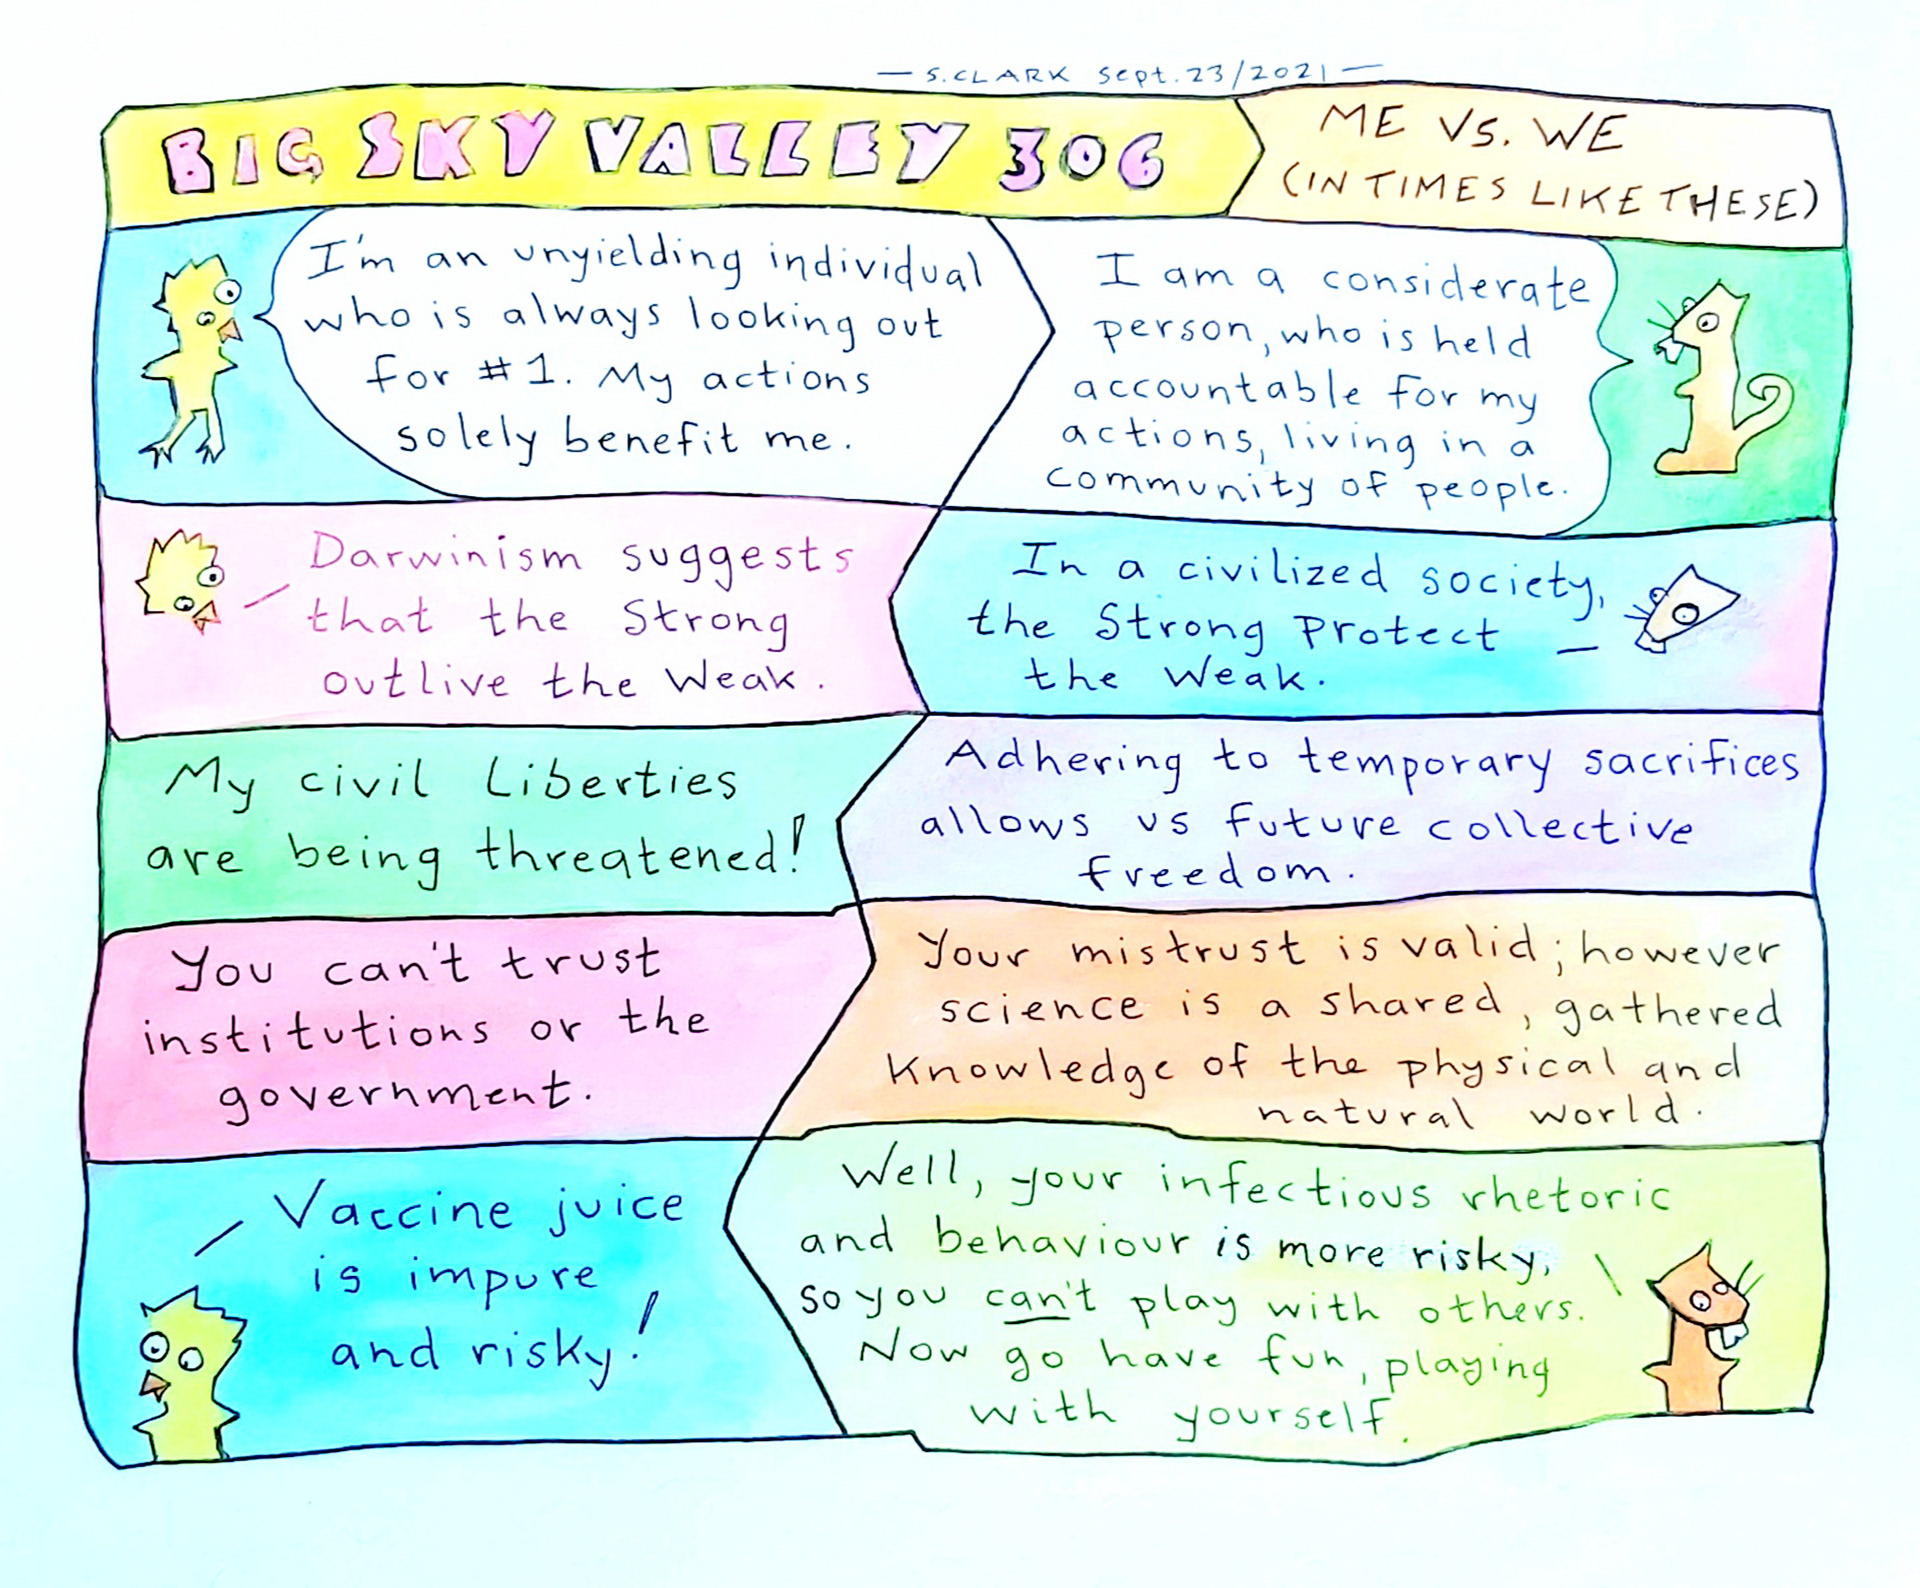 — S.CLARK Sept.23/2021 —
BIG SKY VALLEY 306
ME VS. WE
(IN TIMES LIKE THESE)
I'm an unyielding individual
who is always looking out
for #1. My actions
solely benefit me.
I am a considerate
person, who is held
accountable for my
actions, living in a
community of people.
Darwinism suggests
that the Strong
outlive the Weak.
In a civilized society,
the Strong Protect
the Weak.
My civil Liberties
are being threatened!
Adhering to temporary sacrifices
allows us future collective
freedom.
You can't trust
institutions or the
government.
Your mistrust is valid; however
science is a shared, gathered
Knowledge of the physical and
natural world.
Vaccine juice
is impure
and risky!
Well, your infectious rhetoric
and behaviour is more risky,
so you can't play with others.
Now go have fun, playing
with yourself.